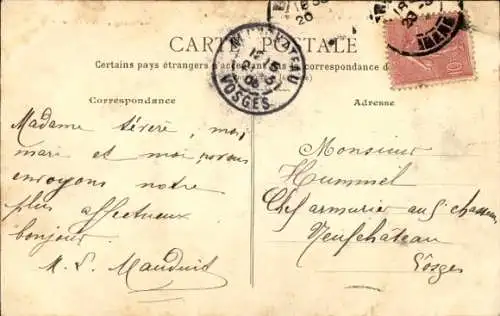 CARTE POSTALE
Certains pays étrangers n'acceptent pas la correspondance de
Correspondance
Adresse
Madame Séveré, mon
mari et moi, vous
envoyons notre
plus affectueux
bonjour.
M. L. Mauduit
Monsieur
Hummel
Chef armurier au 5e chasseurs
Neufchâteau
Vosges
VOSGES
10